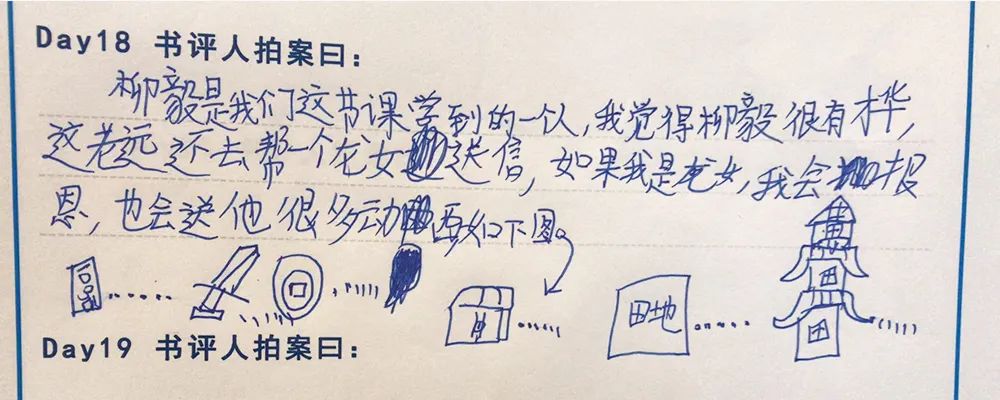 Day18 书评人拍案曰：
柳毅是我们这节课学到的一个人，我觉得柳毅很有桦，
这老远还去帮一个龙女送信，如果我是龙女，我会报
恩，也会送他很多动西如下图。
田地
Day19 书评人拍案曰：